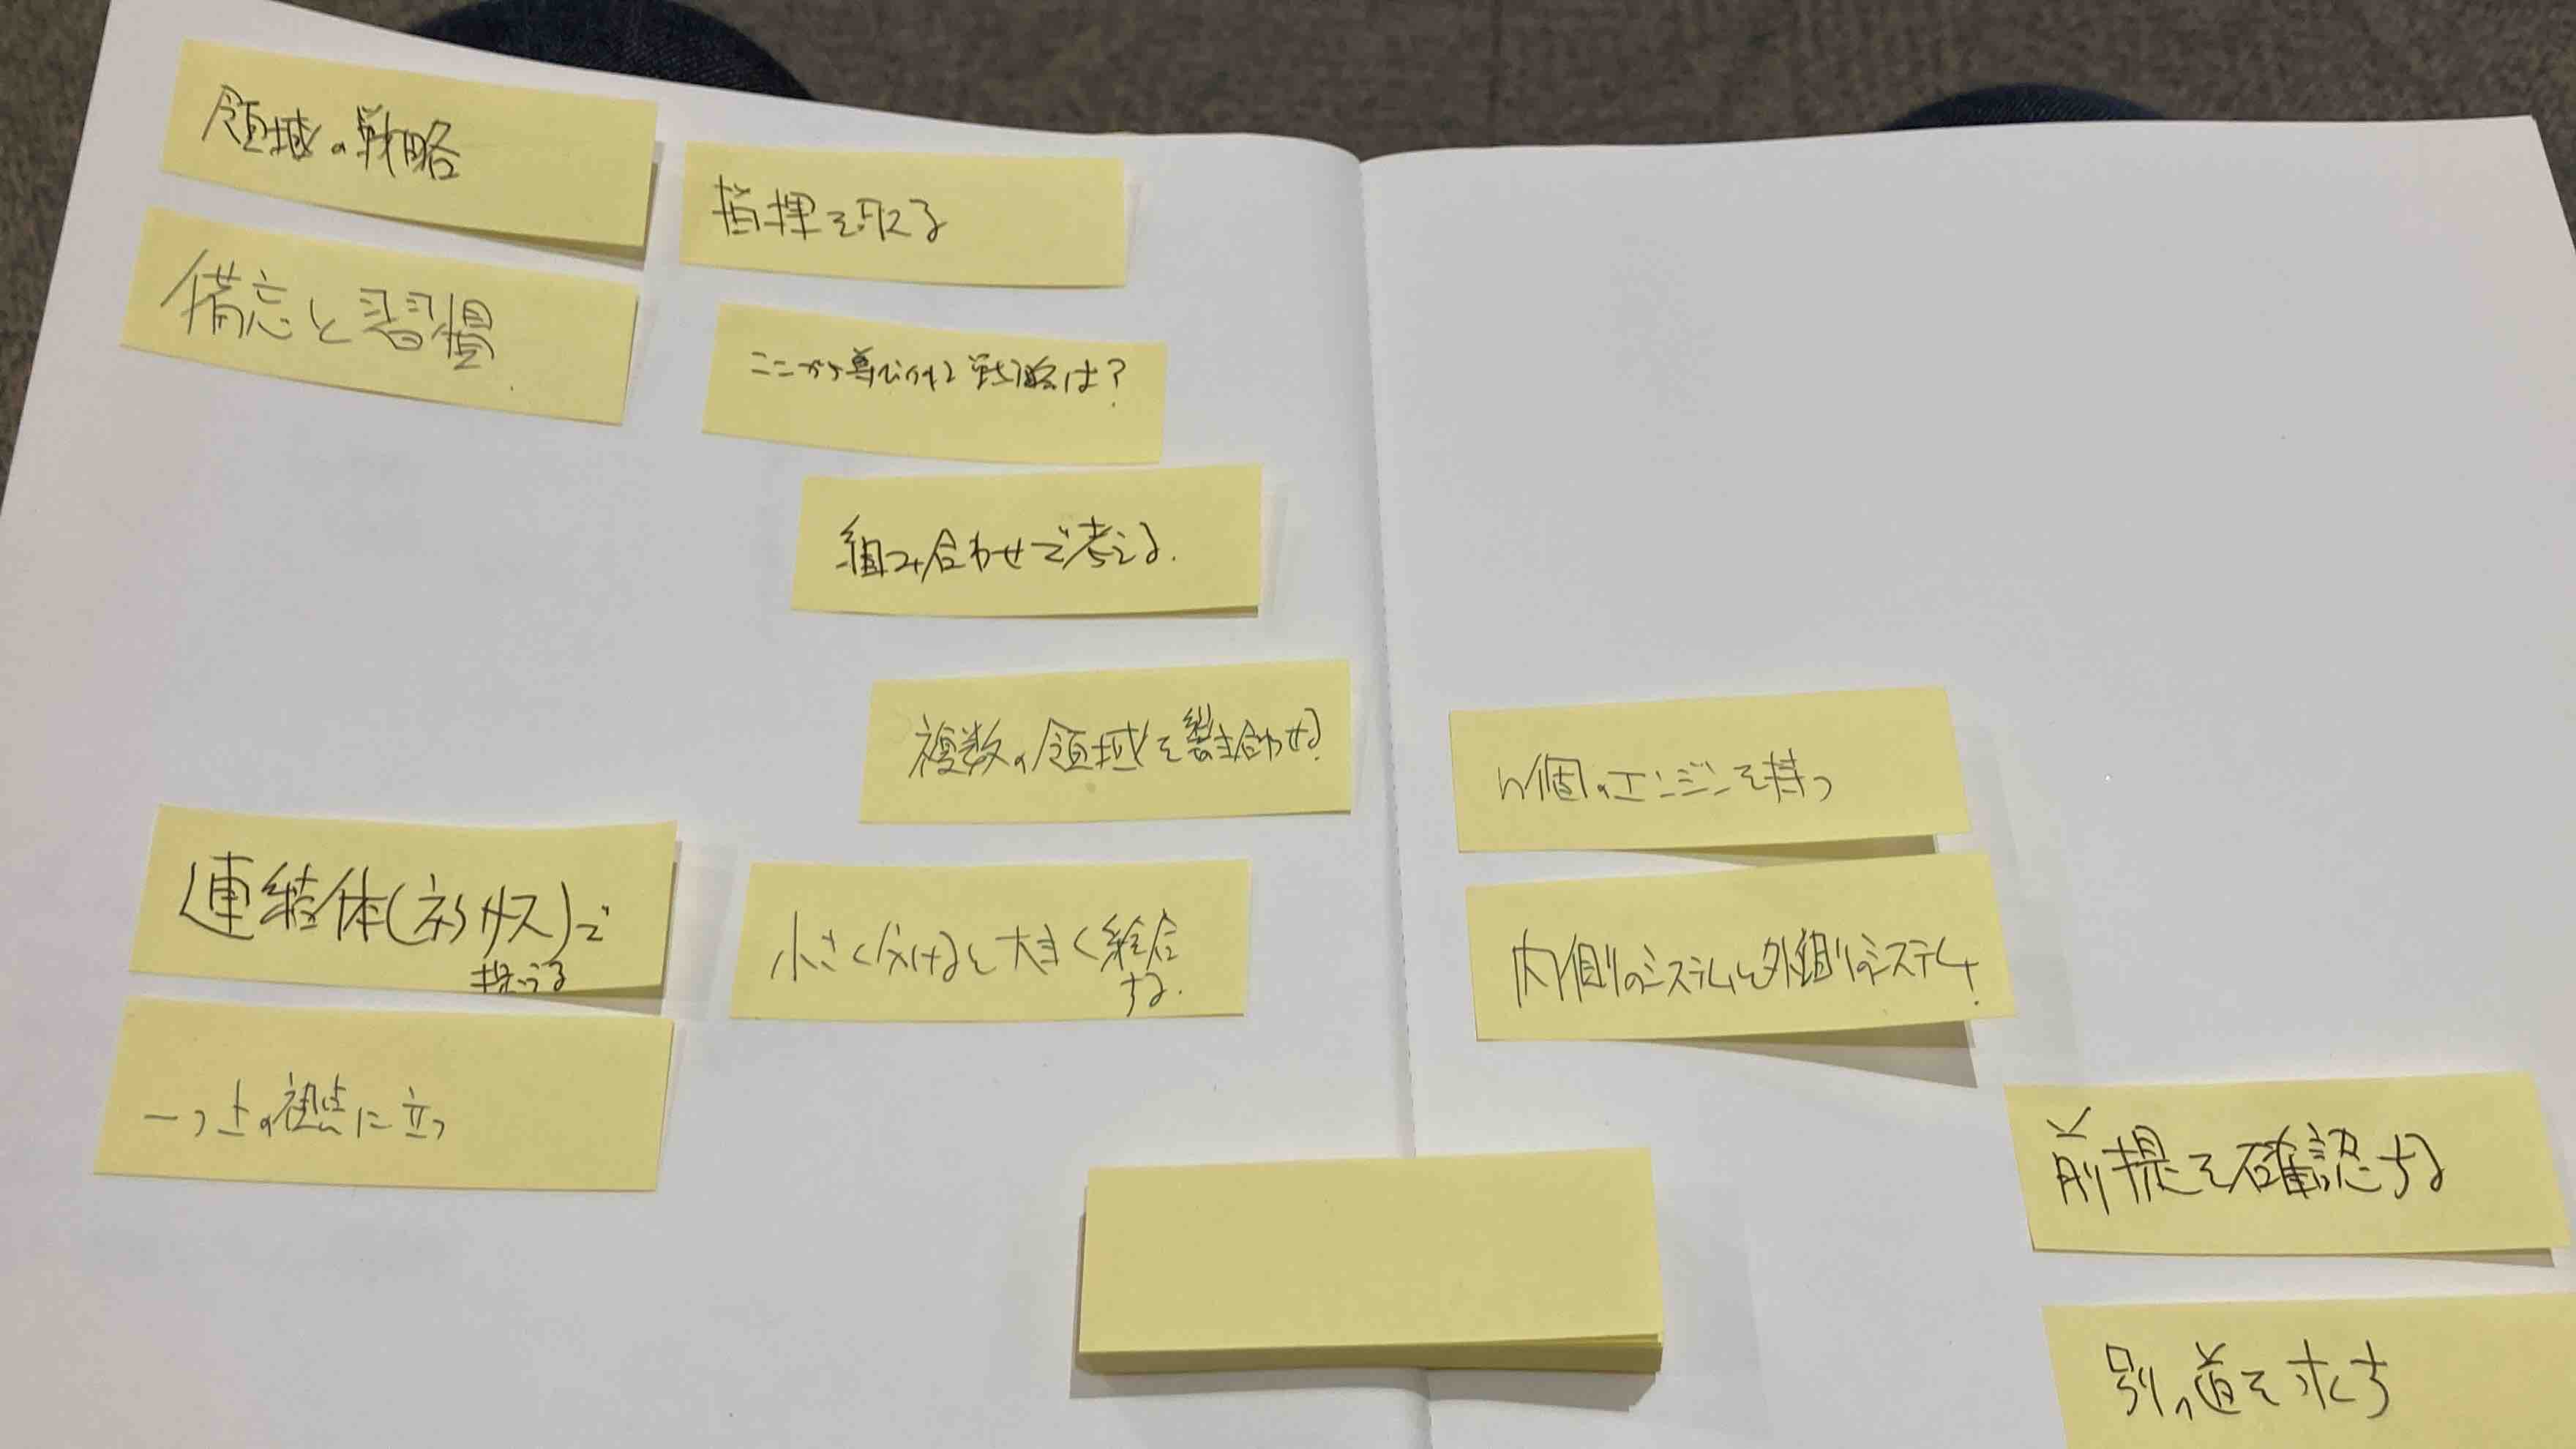 領域の戦略
備忘と習慣
指揮を取る
ここから導びける戦略は?
組み合わせで考える.
複数の領域を製き合わせる
n個のエンジンを持つ
内側のシステムと外側のシステム.
連結体(ネクサス)で
捉える
小さく分けると大きく結合
する.
一つ上の視点に立つ
前提を確認する
別の道を求む